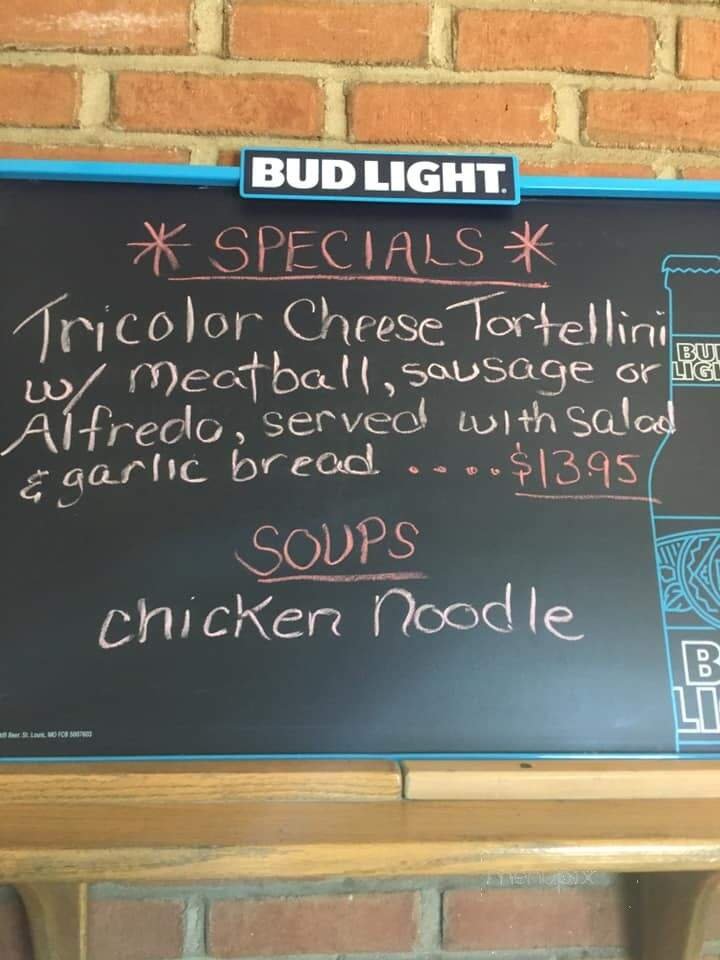 BUD LIGHT.
* SPECIALS *
Tricolor Cheese Tortellini
w/ meatball, sausage or
Alfredo, served with Salad
& garlic bread ..... $13.95
SOUPS
chicken noodle
BU
LIG
B
LI
Beer, St. Louis, MO
menupix